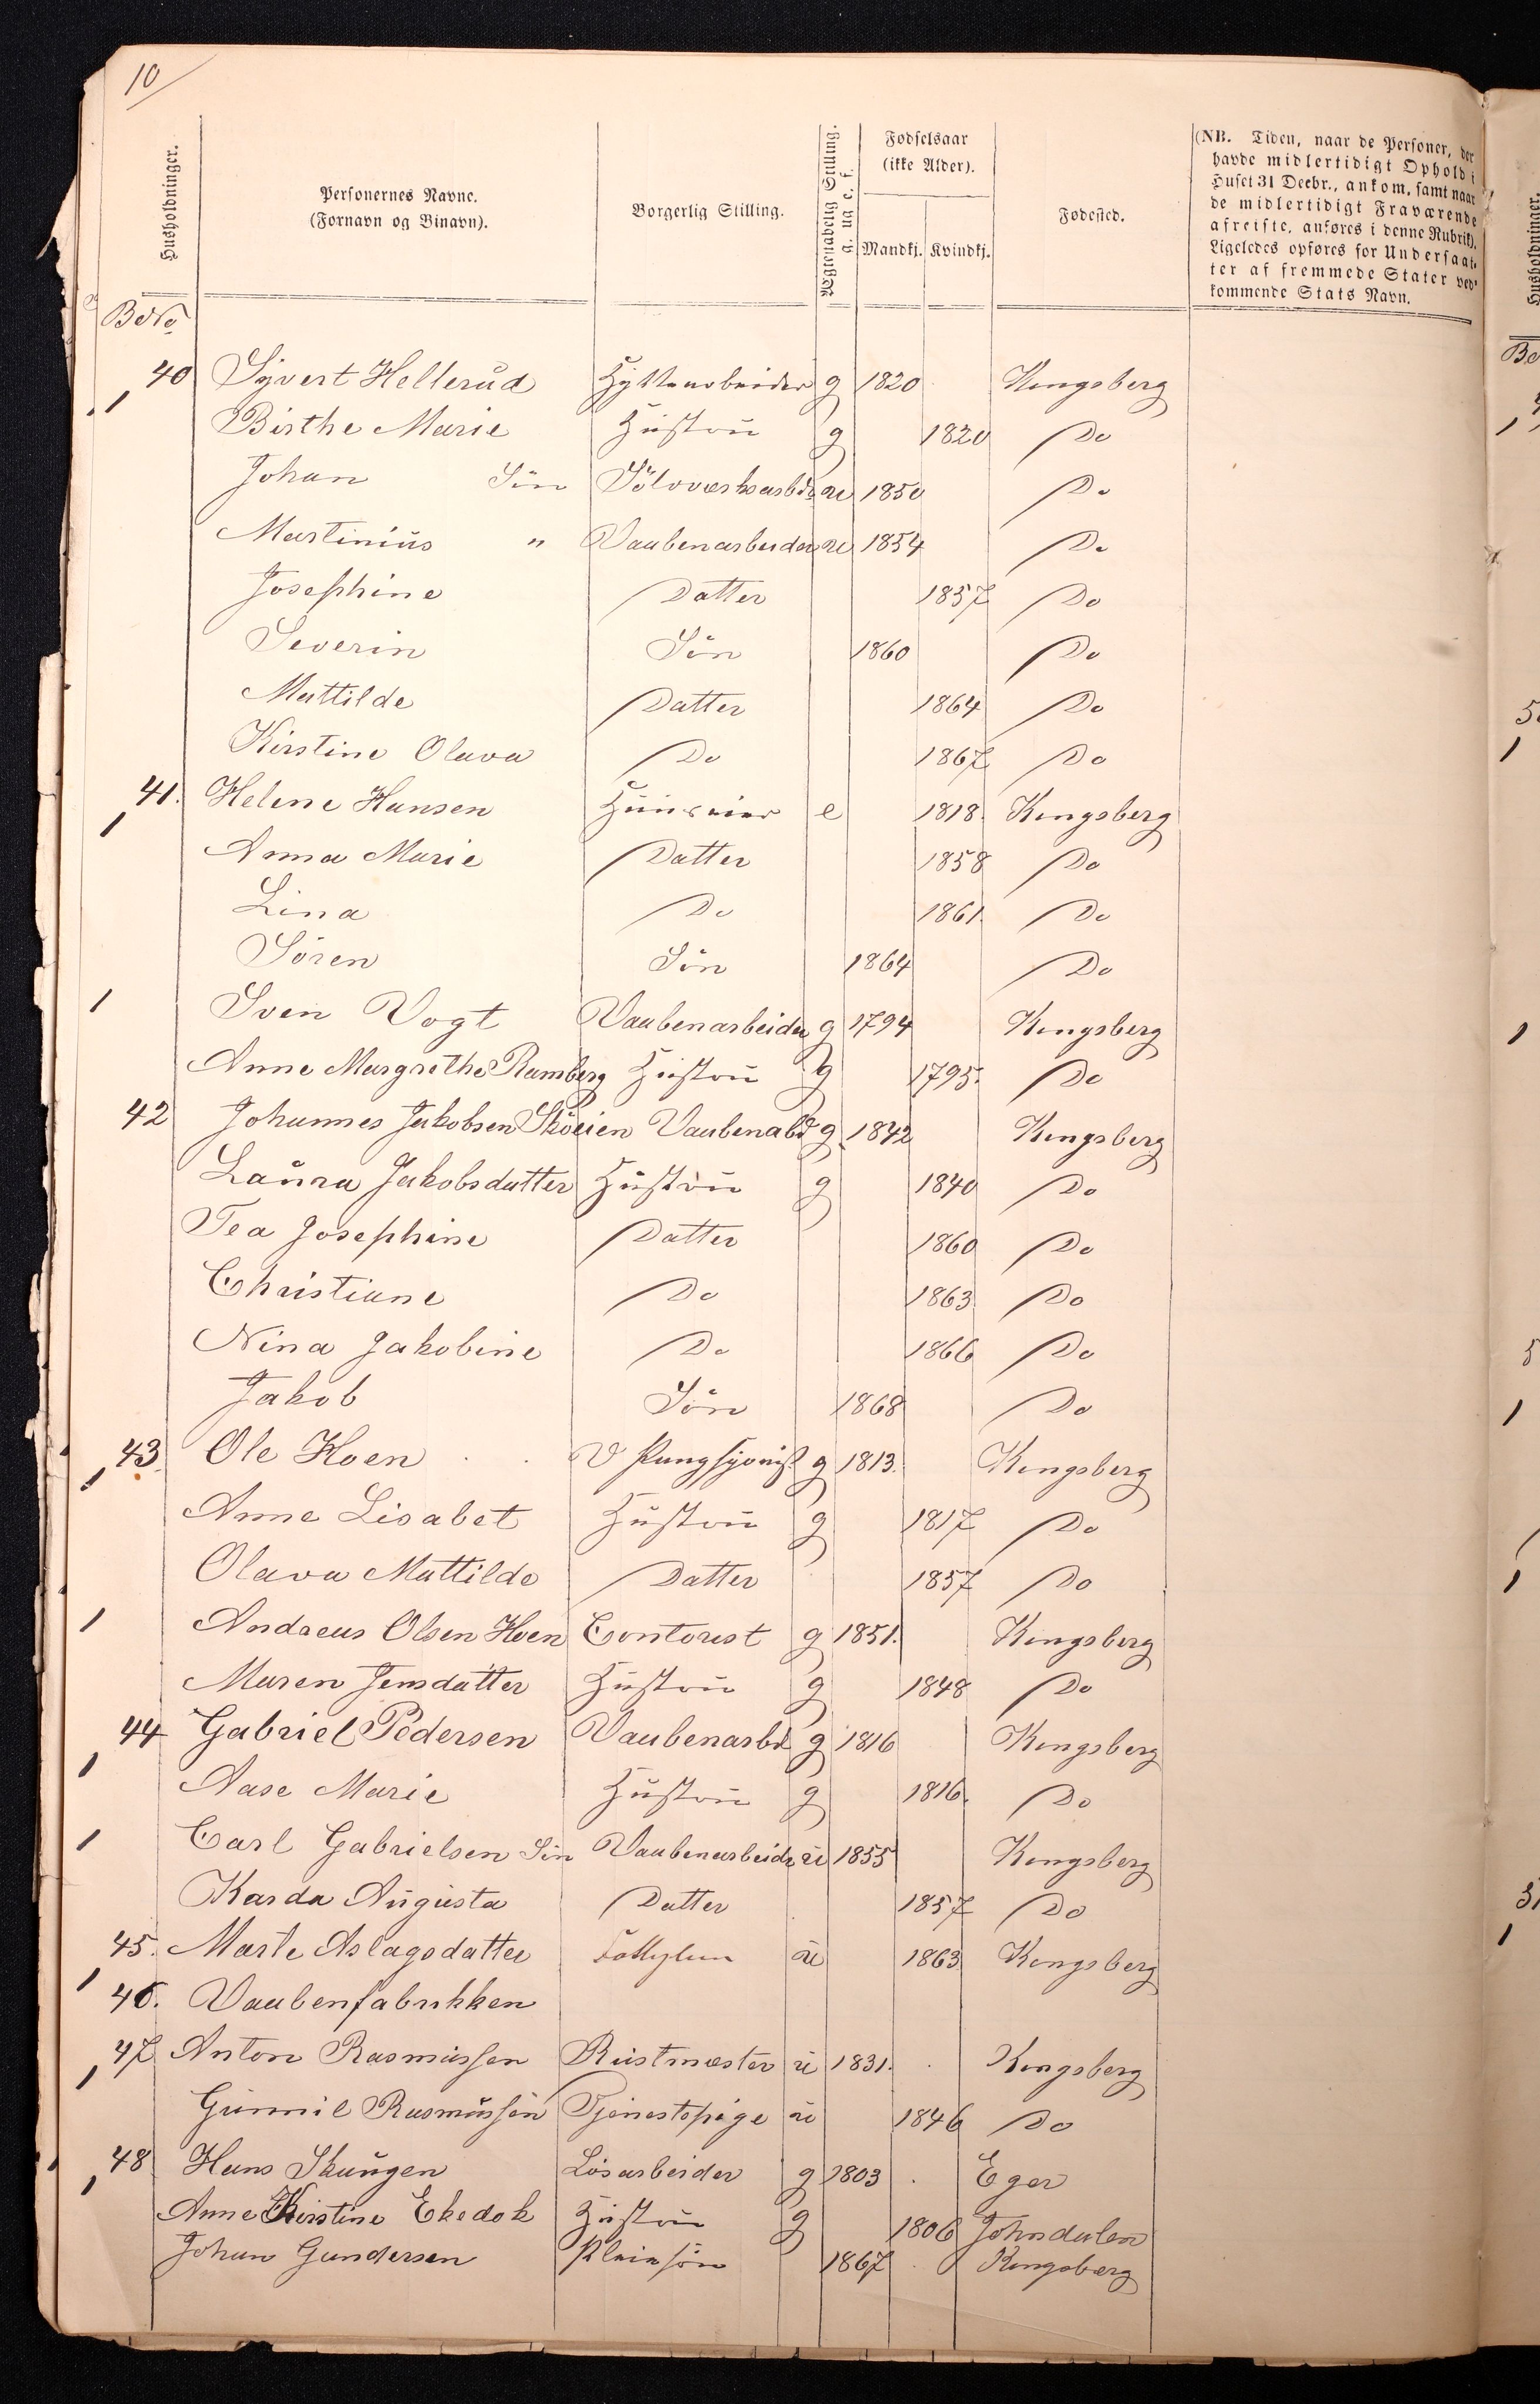 10
Husholdninger.
Personernes Navne.
(Fornavn og Binavn).
Borgerlig Stilling.
Ægteskabelig Stilling.
g. ug. e. f.
Fødselsaar
(ikke Alder).
Mandkj. Kvindkj.
Fødested.
(NB. Tiden, naar de Personer, der
havde midlertidigt Ophold i
Huset 31 Decbr., ankom, samt naar
de midlertidigt Fraværende
afreiste, anføres i denne Rubrik).
Ligeledes opføres for Undersaat-
ter af fremmede Stater ved-
kommende Stats Navn.
BoNo
40 Syvert Hellerud Hyttearbeider g 1820 Kongsberg
1
Birthe Marie Hustru g 1820 Do
Johan Sön Sölværksarbd. u 1850 Do
Martinius " Vaabenarbeider u 1854 Do
Josephine Datter 1857 Do
Severin Sön 1860 Do
Mattilde Datter 1864 Do
Kirstine Olava Do 1867 Do
41. Helene Hansen Huuseier e 1818. Kongsberg
1
Anna Marie Datter 1858 Do
Lina Do 1861. Do
Sören Sön 1864 Do
1 Sven Vogt Vaabenarbeider g 1794 Kongsberg
Anne Margrethe Ramberg Hustru g 1795. Do
42 Johannes Jakobsen Sköien Vaabenabd g 1842 Kongsberg
Laura Jakobsdatter Hustru g 1840 Do
Tea Josephine Datter 1860 Do
Christiane Do 1863 Do
Nina Jakobine Do 1866 Do
Jakob Sön 1868 Do
43 Ole Hoen V Pungsjonist g 1813. Kongsberg
1
Anne Lisabet Hustru g 1817 Do
Olava Mattilde Datter 1857 Do
1 Andreas Olsen Hoen Contorist g 1851. Kongsberg
Maren Jensdatter Hustru g 1848 Do
44 Gabriel Pedersen Vaabenarbd g 1816 Kongsberg
1
Aase Marie Hustru g 1816. Do
1 Carl Gabrielsen Sön Vaabenarbeidr u 1855 Kongsberg
Karda Augusta Datter 1857 Do
45. Marte Aslagsdatter u 1863 Kongsberg
1
46. Vaabenfabrikken
47 Anton Rasmussen Rustmester u 1831. Kongsberg
1
Gunnil Rasmussen Tjenestepige u 1846 Do
48 Hans Skungen Lösarbeider g 1803 Eger
1
Anne Kirstine Ekedok Hustru g 1806 Johndalen
Johan Gundersen Pleiesön 1867 Kongsberg